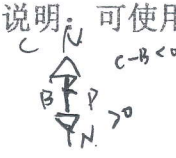 说明:可使用
C N
C-B<0
B P
N >0